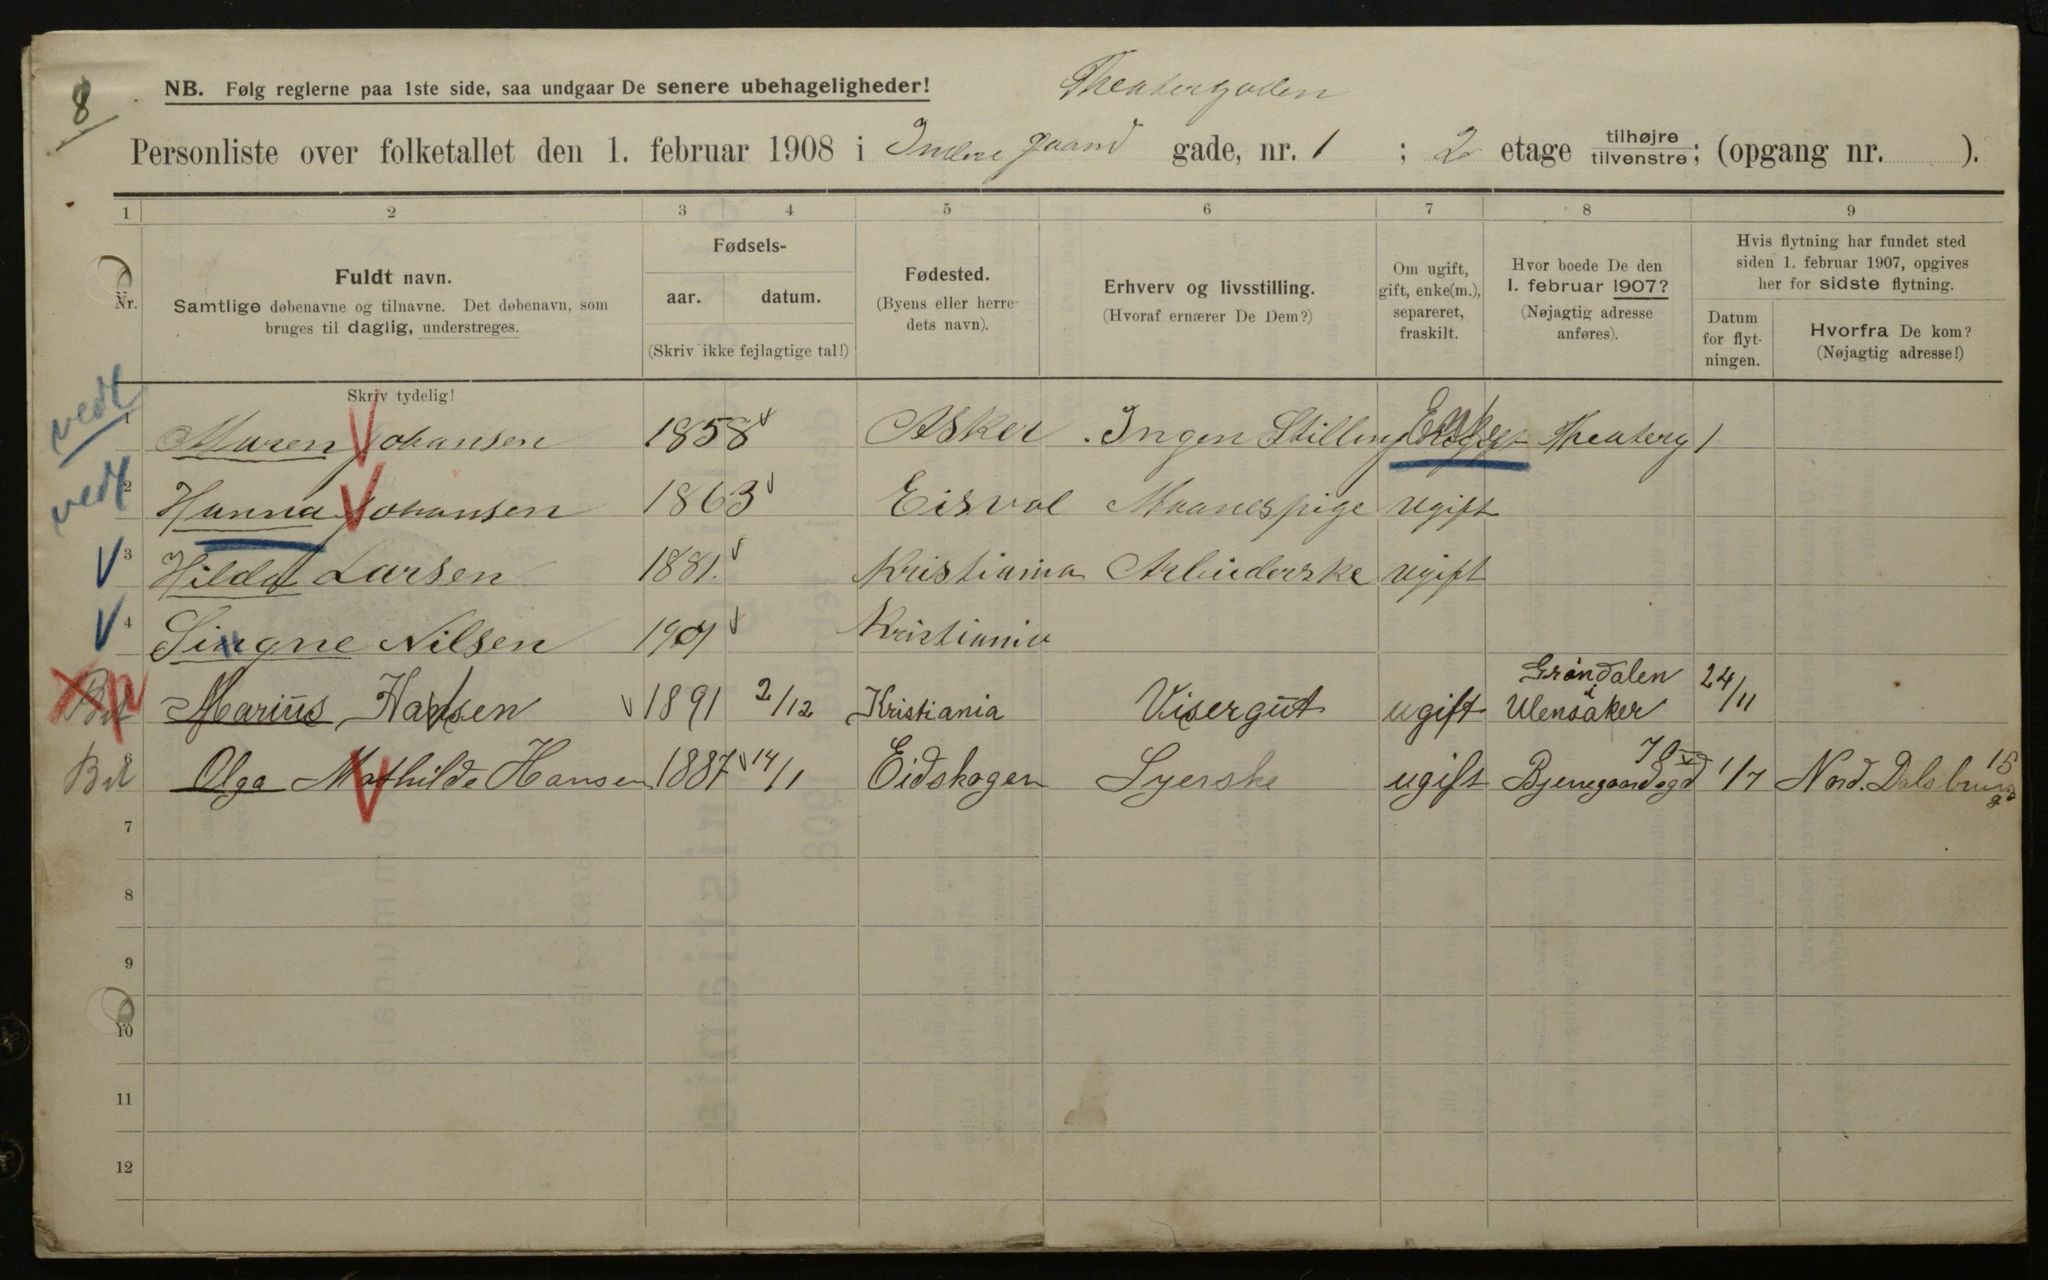 8
NB. Følg reglerne paa 1ste side, saa undgaar De senere ubehageligheder!
Theatergaden
Personliste over folketallet den 1. februar 1908 i Indre gaard gade, nr. 1 ; 2 etage tilhøjre/tilvenstre; (opgang nr. ).
1 2 3 4 5 6 7 8 9
Nr.
Fuldt navn.
Samtlige døbenavne og tilnavne. Det døbenavn, som
bruges til daglig, understreges.
Skriv tydelig!
Fødsels-
aar. datum.
(Skriv ikke fejlagtige tal!)
Fødested.
(Byens eller herre-
dets navn).
Erhverv og livsstilling.
(Hvoraf ernærer De Dem?)
Om ugift,
gift, enke(m.),
separeret,
fraskilt.
Hvor boede De den
1. februar 1907?
(Nøjagtig adresse
anføres).
Hvis flytning har fundet sted
siden 1. februar 1907, opgives
her for sidste flytning.
Datum
for flyt-
ningen.
Hvorfra De kom?
(Nøjagtig adresse!)
vedt 1 Maren Johansen 1858 Asker Ingen Stilling Enke Theaterg 1
vedt 2 Hanna Johansen 1863 Eisvol Maanespige ugift
3 Hilda Larsen 1881. Kristiania Arbeiderske ugift
4 Singne Nilsen 1901 Kristiania
Marius Hansen 1891 2/12 Kristiania Visergut ugift Grøndalen i Ulensaker 24/11
6 Olga Mathilde Hansen 1887 14/1 Eidskogen Syerske ugift 1/7 Nord. Dalsbrung 15
7
8
9
10
11
12